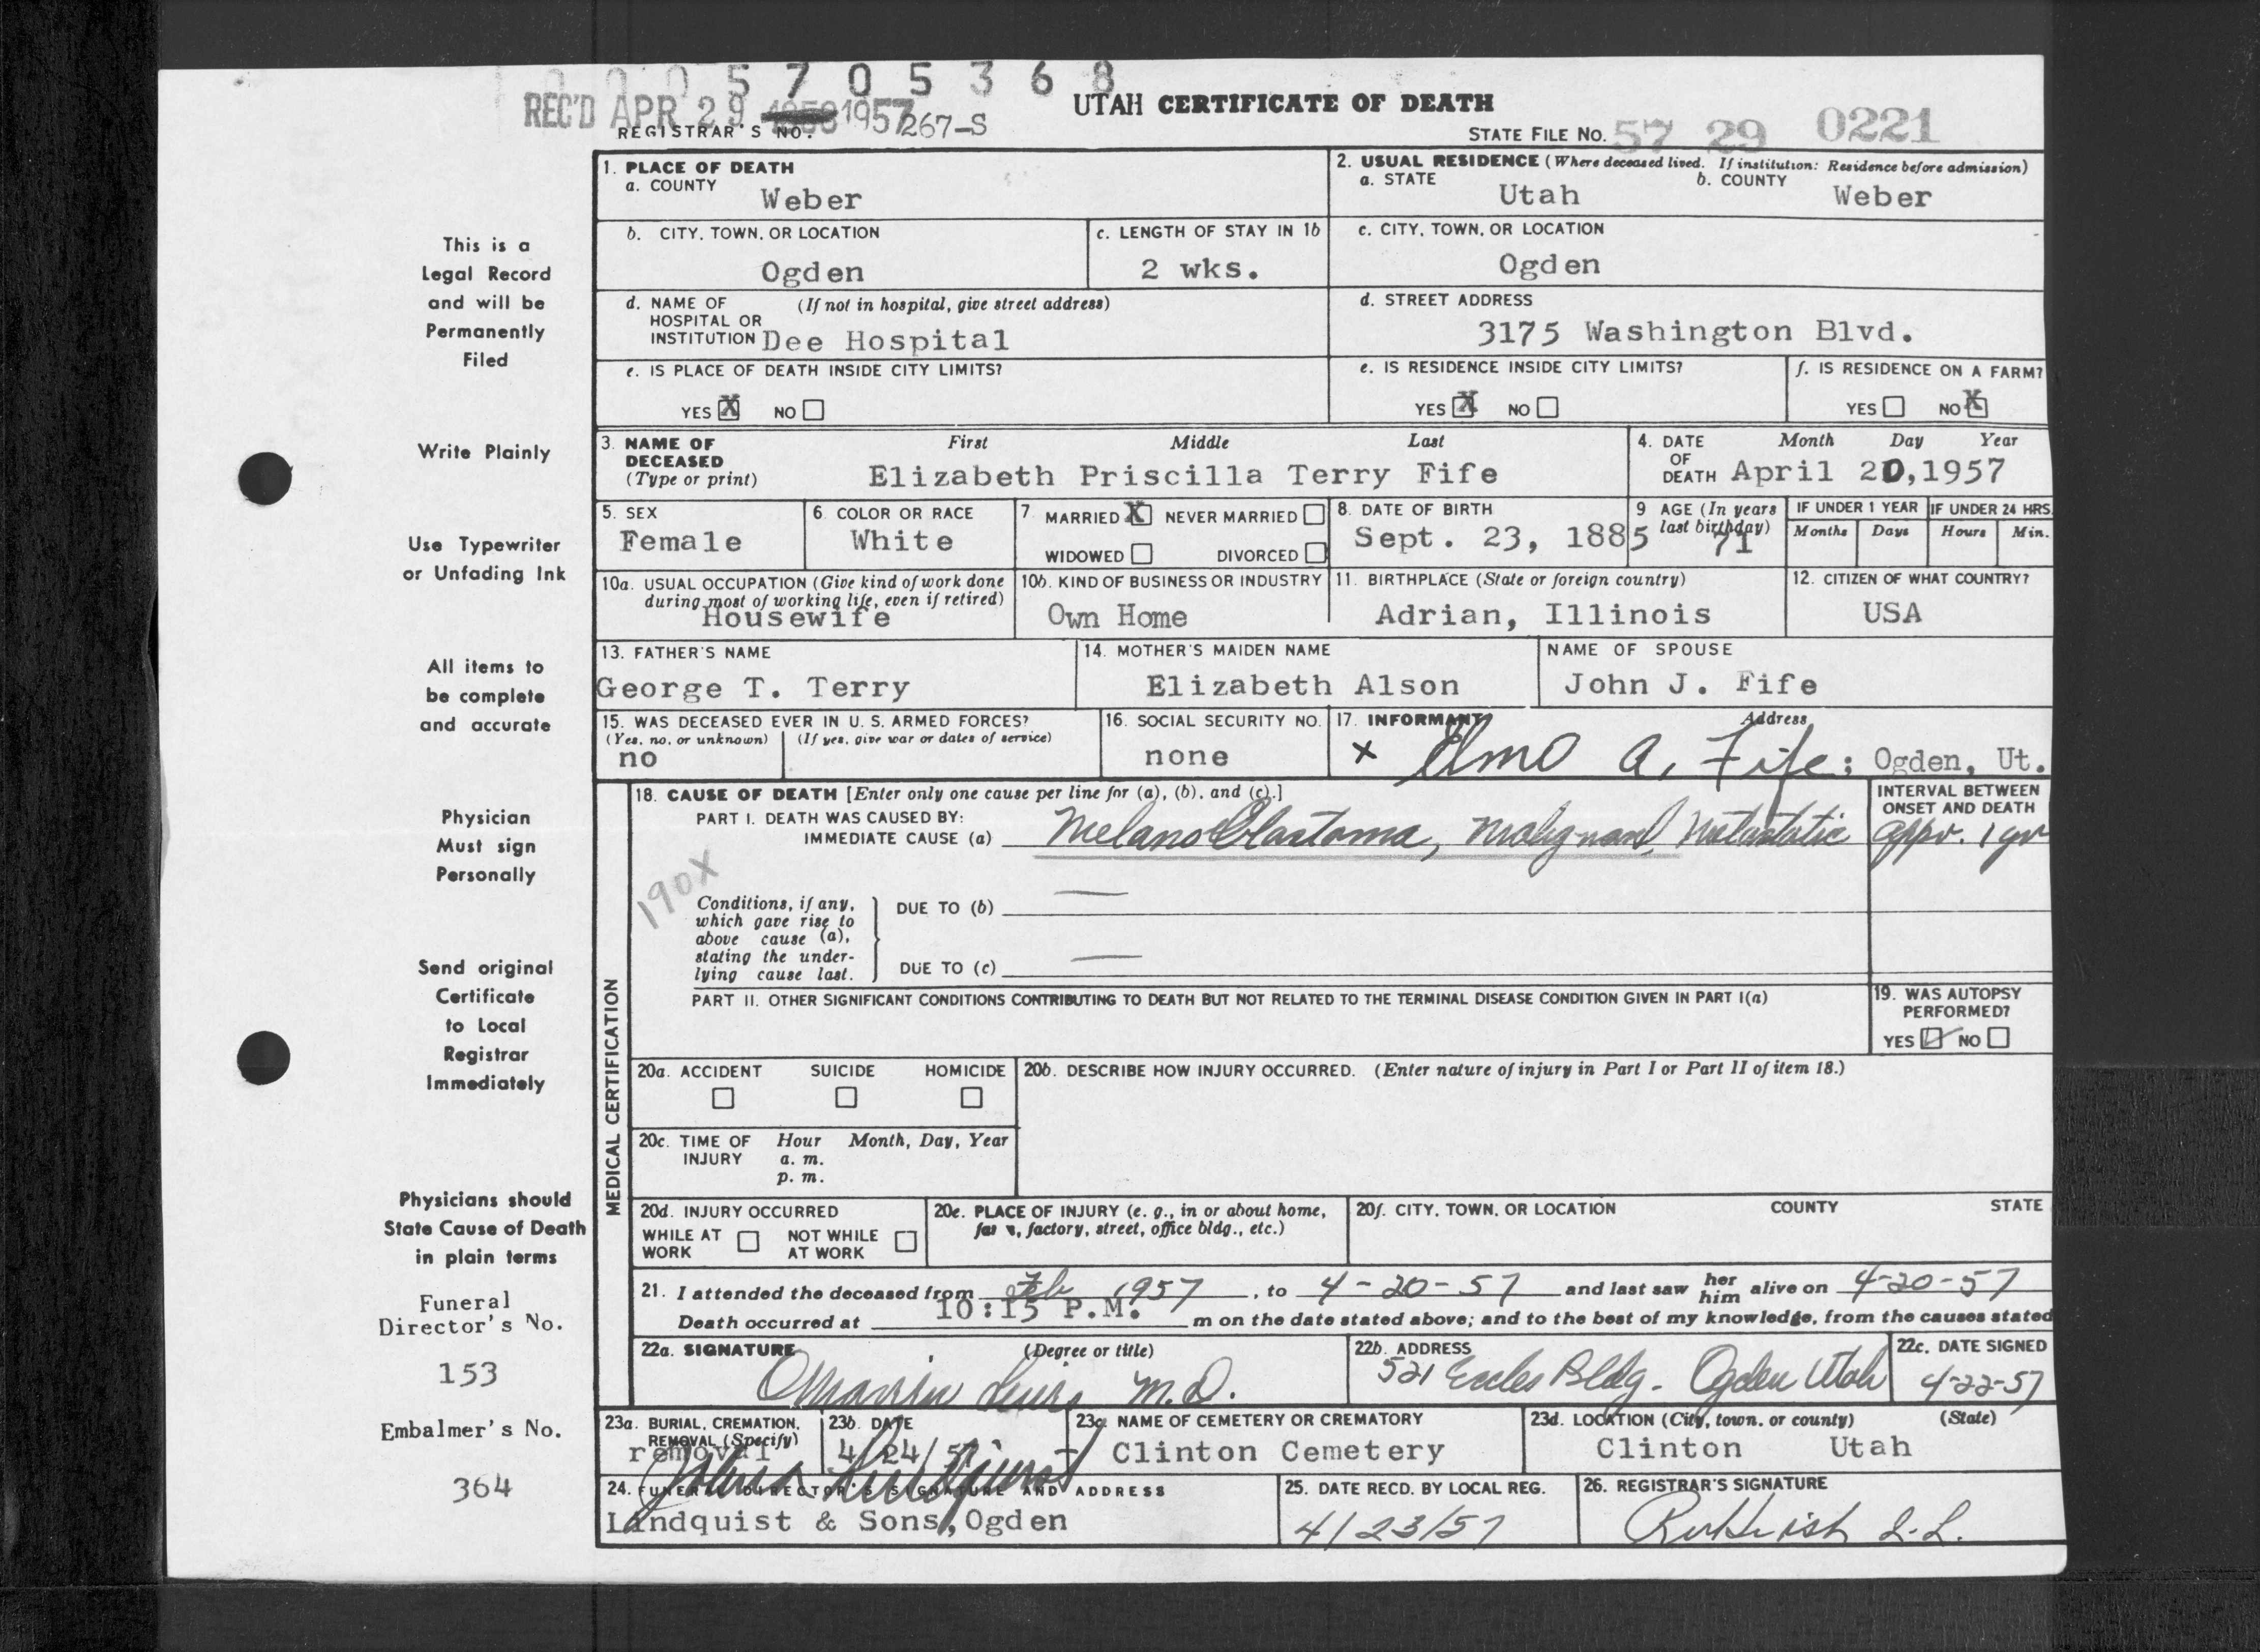 1 0 0 0 5 7 0 5 3 6 8
REC'D APR 29 1957
REGISTRAR'S NO. 267-S
UTAH CERTIFICATE OF DEATH
STATE FILE NO. 57 29 0221
1. PLACE OF DEATH
a. COUNTY
Weber
2. USUAL RESIDENCE (Where deceased lived. If institution: Residence before admission)
a. STATE b. COUNTY
Utah Weber
b. CITY, TOWN, OR LOCATION
Ogden
c. LENGTH OF STAY IN 1b
2 wks.
c. CITY, TOWN, OR LOCATION
Ogden
d. NAME OF (If not in hospital, give street address)
HOSPITAL OR
INSTITUTION Dee Hospital
d. STREET ADDRESS
3175 Washington Blvd.
e. IS PLACE OF DEATH INSIDE CITY LIMITS?
YES X NO
e. IS RESIDENCE INSIDE CITY LIMITS?
YES X NO
f. IS RESIDENCE ON A FARM?
YES NO X
3. NAME OF First Middle Last
DECEASED
(Type or print)
Elizabeth Priscilla Terry Fife
4. DATE Month Day Year
OF
DEATH April 20,1957
5. SEX
Female
6. COLOR OR RACE
White
7. MARRIED X NEVER MARRIED
WIDOWED DIVORCED
8. DATE OF BIRTH
Sept. 23, 1885
9 AGE (In years
last birthday)
71
IF UNDER 1 YEAR IF UNDER 24 HRS.
Months Days Hours Min.
10a. USUAL OCCUPATION (Give kind of work done
during most of working life, even if retired)
Housewife
10b. KIND OF BUSINESS OR INDUSTRY
Own Home
11. BIRTHPLACE (State or foreign country)
Adrian, Illinois
12. CITIZEN OF WHAT COUNTRY?
USA
13. FATHER'S NAME
George T. Terry
14. MOTHER'S MAIDEN NAME
Elizabeth Alson
NAME OF SPOUSE
John J. Fife
15. WAS DECEASED EVER IN U. S. ARMED FORCES?
(Yes, no, or unknown) (If yes, give war or dates of service)
no
16. SOCIAL SECURITY NO.
none
17. INFORMANT Address
x Elmo A. Fife; Ogden, Ut.
MEDICAL CERTIFICATION
18. CAUSE OF DEATH [Enter only one cause per line for (a), (b), and (c).]
INTERVAL BETWEEN
ONSET AND DEATH
PART I. DEATH WAS CAUSED BY:
IMMEDIATE CAUSE (a) Melanoblastoma, Malignant, Metastatic appr. 1 yr
190X
Conditions, if any,
which gave rise to
above cause (a),
stating the under-
lying cause last.
DUE TO (b) —
DUE TO (c) —
PART II. OTHER SIGNIFICANT CONDITIONS CONTRIBUTING TO DEATH BUT NOT RELATED TO THE TERMINAL DISEASE CONDITION GIVEN IN PART I(a)
19. WAS AUTOPSY
PERFORMED?
YES ✓ NO
20a. ACCIDENT SUICIDE HOMICIDE
20b. DESCRIBE HOW INJURY OCCURRED. (Enter nature of injury in Part I or Part II of item 18.)
20c. TIME OF Hour Month, Day, Year
INJURY a. m.
p. m.
20d. INJURY OCCURRED
WHILE AT NOT WHILE
WORK AT WORK
20e. PLACE OF INJURY (e. g., in or about home,
farm, factory, street, office bldg., etc.)
20f. CITY, TOWN, OR LOCATION COUNTY STATE
21. I attended the deceased from Feb 1957, to 4-20-57 and last saw her him alive on 4-20-57
Death occurred at 10:15 P.M. m on the date stated above; and to the best of my knowledge, from the causes stated
22a. SIGNATURE (Degree or title)
M.D.
22b. ADDRESS
521 Eccles Bldg. Ogden Utah
22c. DATE SIGNED
4-22-57
23a. BURIAL, CREMATION,
REMOVAL (Specify)
removal
23b. DATE
4/24/57
23c. NAME OF CEMETERY OR CREMATORY
Clinton Cemetery
23d. LOCATION (City, town, or county) (State)
Clinton Utah
24. FUNERAL DIRECTOR'S SIGNATURE AND ADDRESS
Lindquist & Sons, Ogden
25. DATE RECD. BY LOCAL REG.
4/23/57
26. REGISTRAR'S SIGNATURE
This is a
Legal Record
and will be
Permanently
Filed
Write Plainly
Use Typewriter
or Unfading Ink
All items to
be complete
and accurate
Physician
Must sign
Personally
Send original
Certificate
to Local
Registrar
Immediately
Physicians should
State Cause of Death
in plain terms
Funeral
Director's No.
153
Embalmer's No.
364